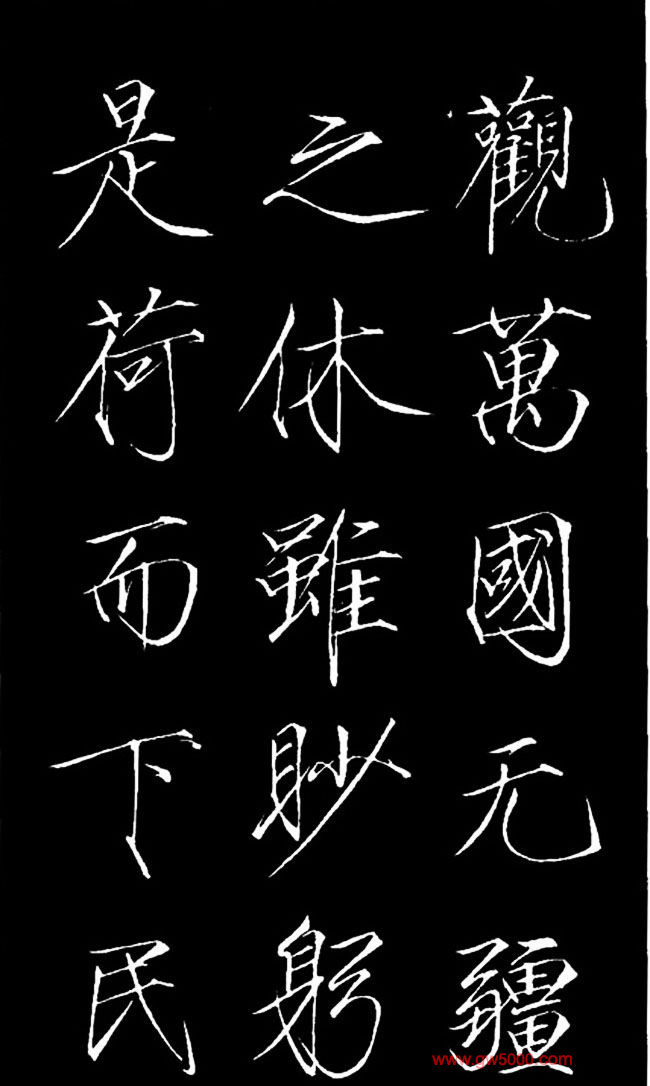 觀萬國无疆
之休雖眇躬
是荷而下民
www.gw5000.com